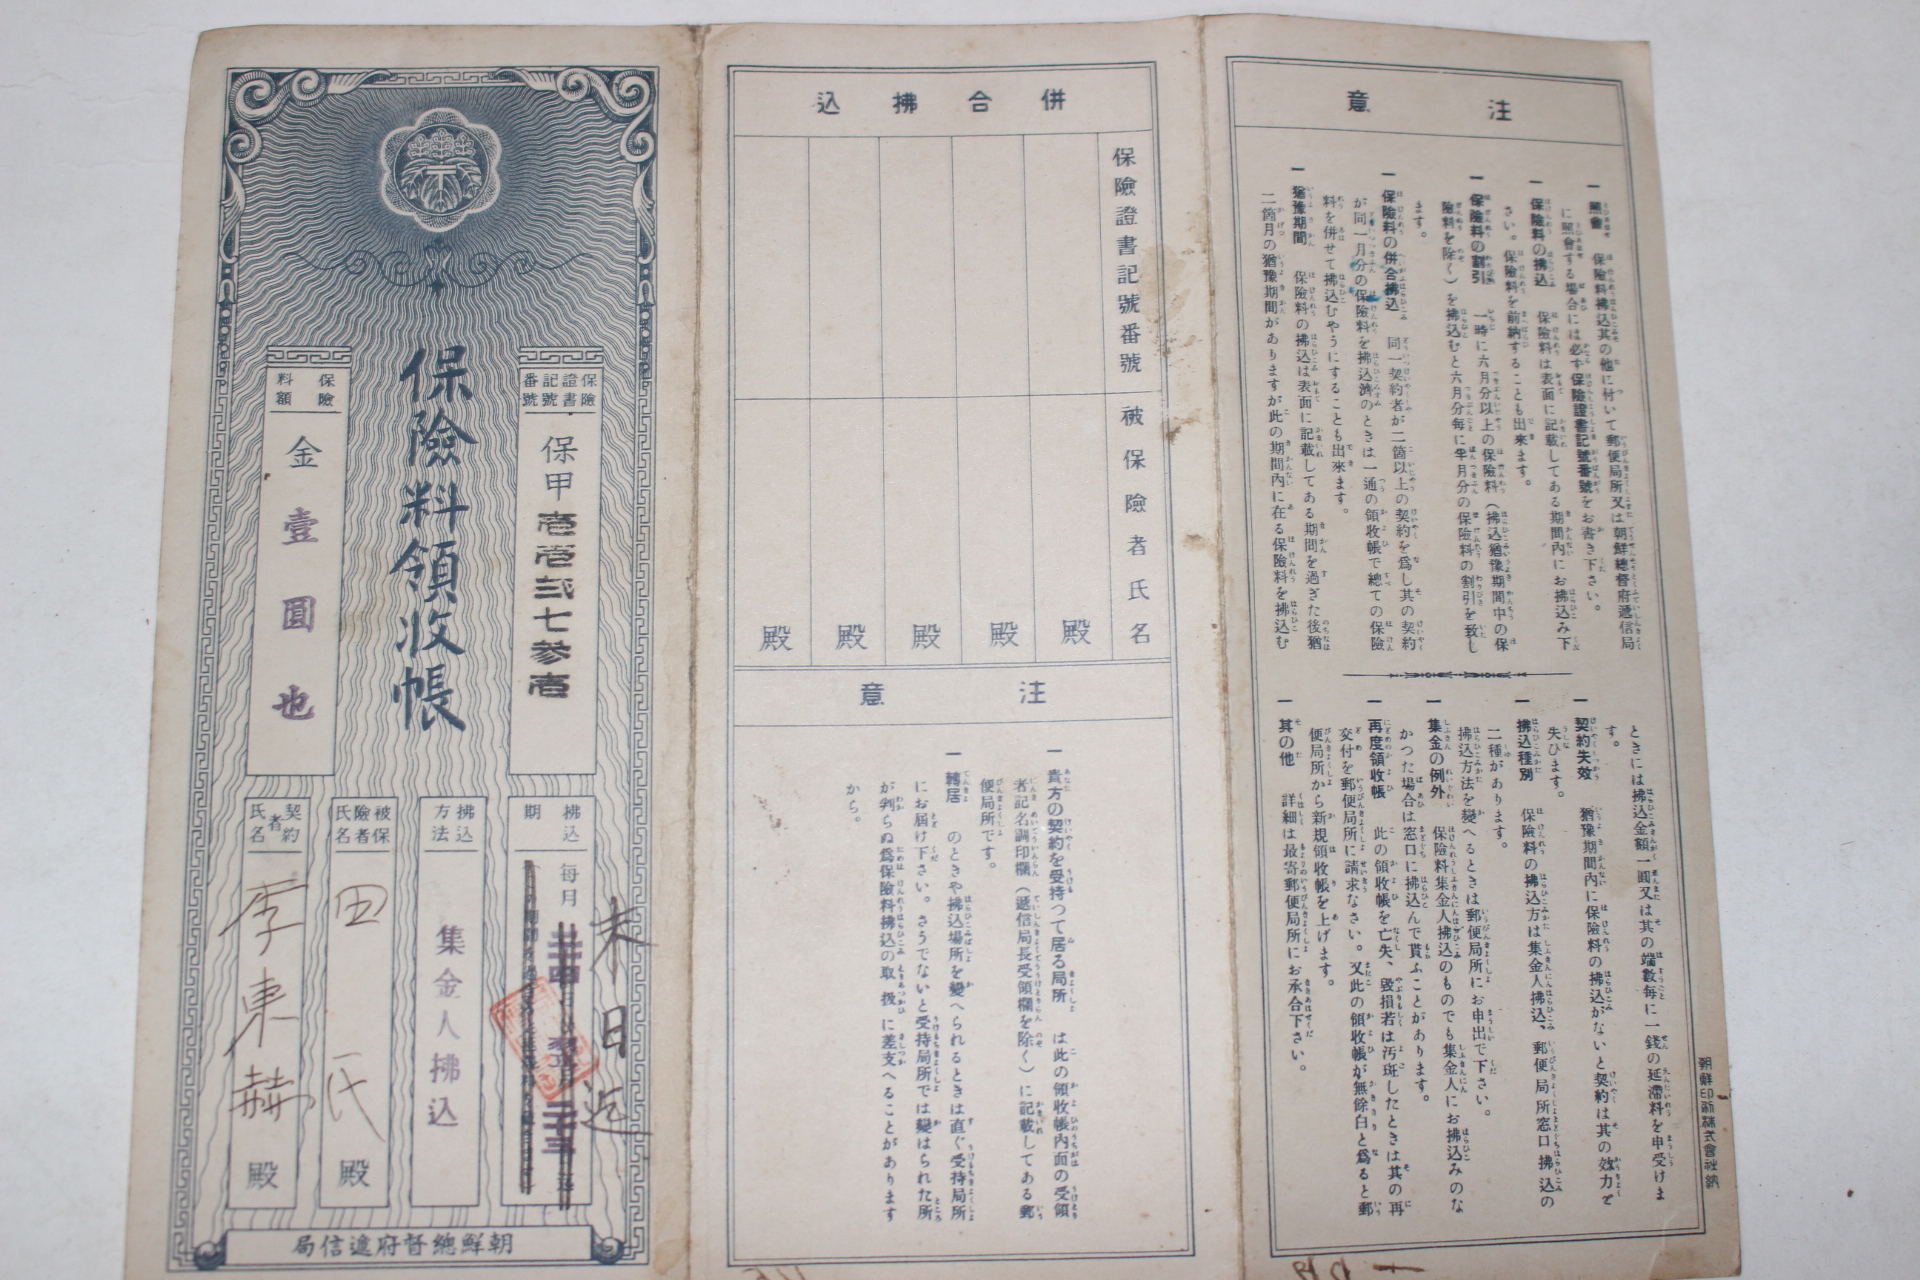 保險料領收帳
保險證書記號番號
保甲壱壱弐七參壱
保險料額
金壹圓也
拂込期
每月
末日迄
拂込方法
集金人拂込
被保險者氏名
田氏殿
契約者氏名
李東赫殿
朝鮮總督府遞信局
併合拂込
保險證書記號番號
被保險者氏名
殿
殿
殿
殿
殿
注意
一 貴方の契約を受持つて居る局所 は此の領收帳內面の受領
者記名調印欄(遞信局長受領欄を除く)に記載してある郵
便局所です。
一 轉居 のときや拂込場所を變へられるときは直ぐ受持局所
にお届け下さい。さうでないと受持局所では變はられた所
が判らぬ爲保險料拂込の取扱に差支へることがあります
から。
注意
一 照會 保險料拂込其の他に付いて郵便局所又は朝鮮總督府遞信局
に照會する場合には必ず保險證書記號番號をお書き下さい。
一 保險料の拂込 保險料は表面に記載してある期間內にお拂込み下
さい。保險料を前納することも出來ます。
一 保險料の割引 一時に六月分以上の保險料(拂込猶豫期間中の保
險料を除く)を拂込むと六月分每に半月分の保險料の割引を致し
ます。
一 保險料の併合拂込 同一契約者が二箇以上の契約を爲し其の契約
が同一月分の保險料を拂込濟のときは一通の領收帳で總ての保險
料を併せて拂込むやうにすることも出來ます。
一 猶豫期間 保險料の拂込は表面に記載してある期間を過ぎた後猶
二箇月の猶豫期間がありますが此の期間內に在る保險料を拂込む
ときには拂込金額一圓又は其の端數每に一錢の延滯料を申受けま
す。
一 契約失效 猶豫期間內に保險料の拂込がないと契約は其の效力を
失ひます。
一 拂込種別 保險料の拂込方は集金人拂込、郵便局所窓口拂込の
二種があります。
拂込方法を變へるときは郵便局所にお申出で下さい。
一 集金の例外 保險料集金人拂込のものでも集金人にお拂込みのな
かつた場合は窓口に拂込んで貰ふことがあります。
一 再度領收帳 此の領收帳を亡失、毀損若は汚斑したときは其の再
交付を郵便局所に請求なさい。又此の領收帳が無餘白と爲ると郵
便局所から新規領收帳を上げます。
一 其の他 詳細は最寄郵便局所にお承合下さい。
朝鮮印刷株式會社納